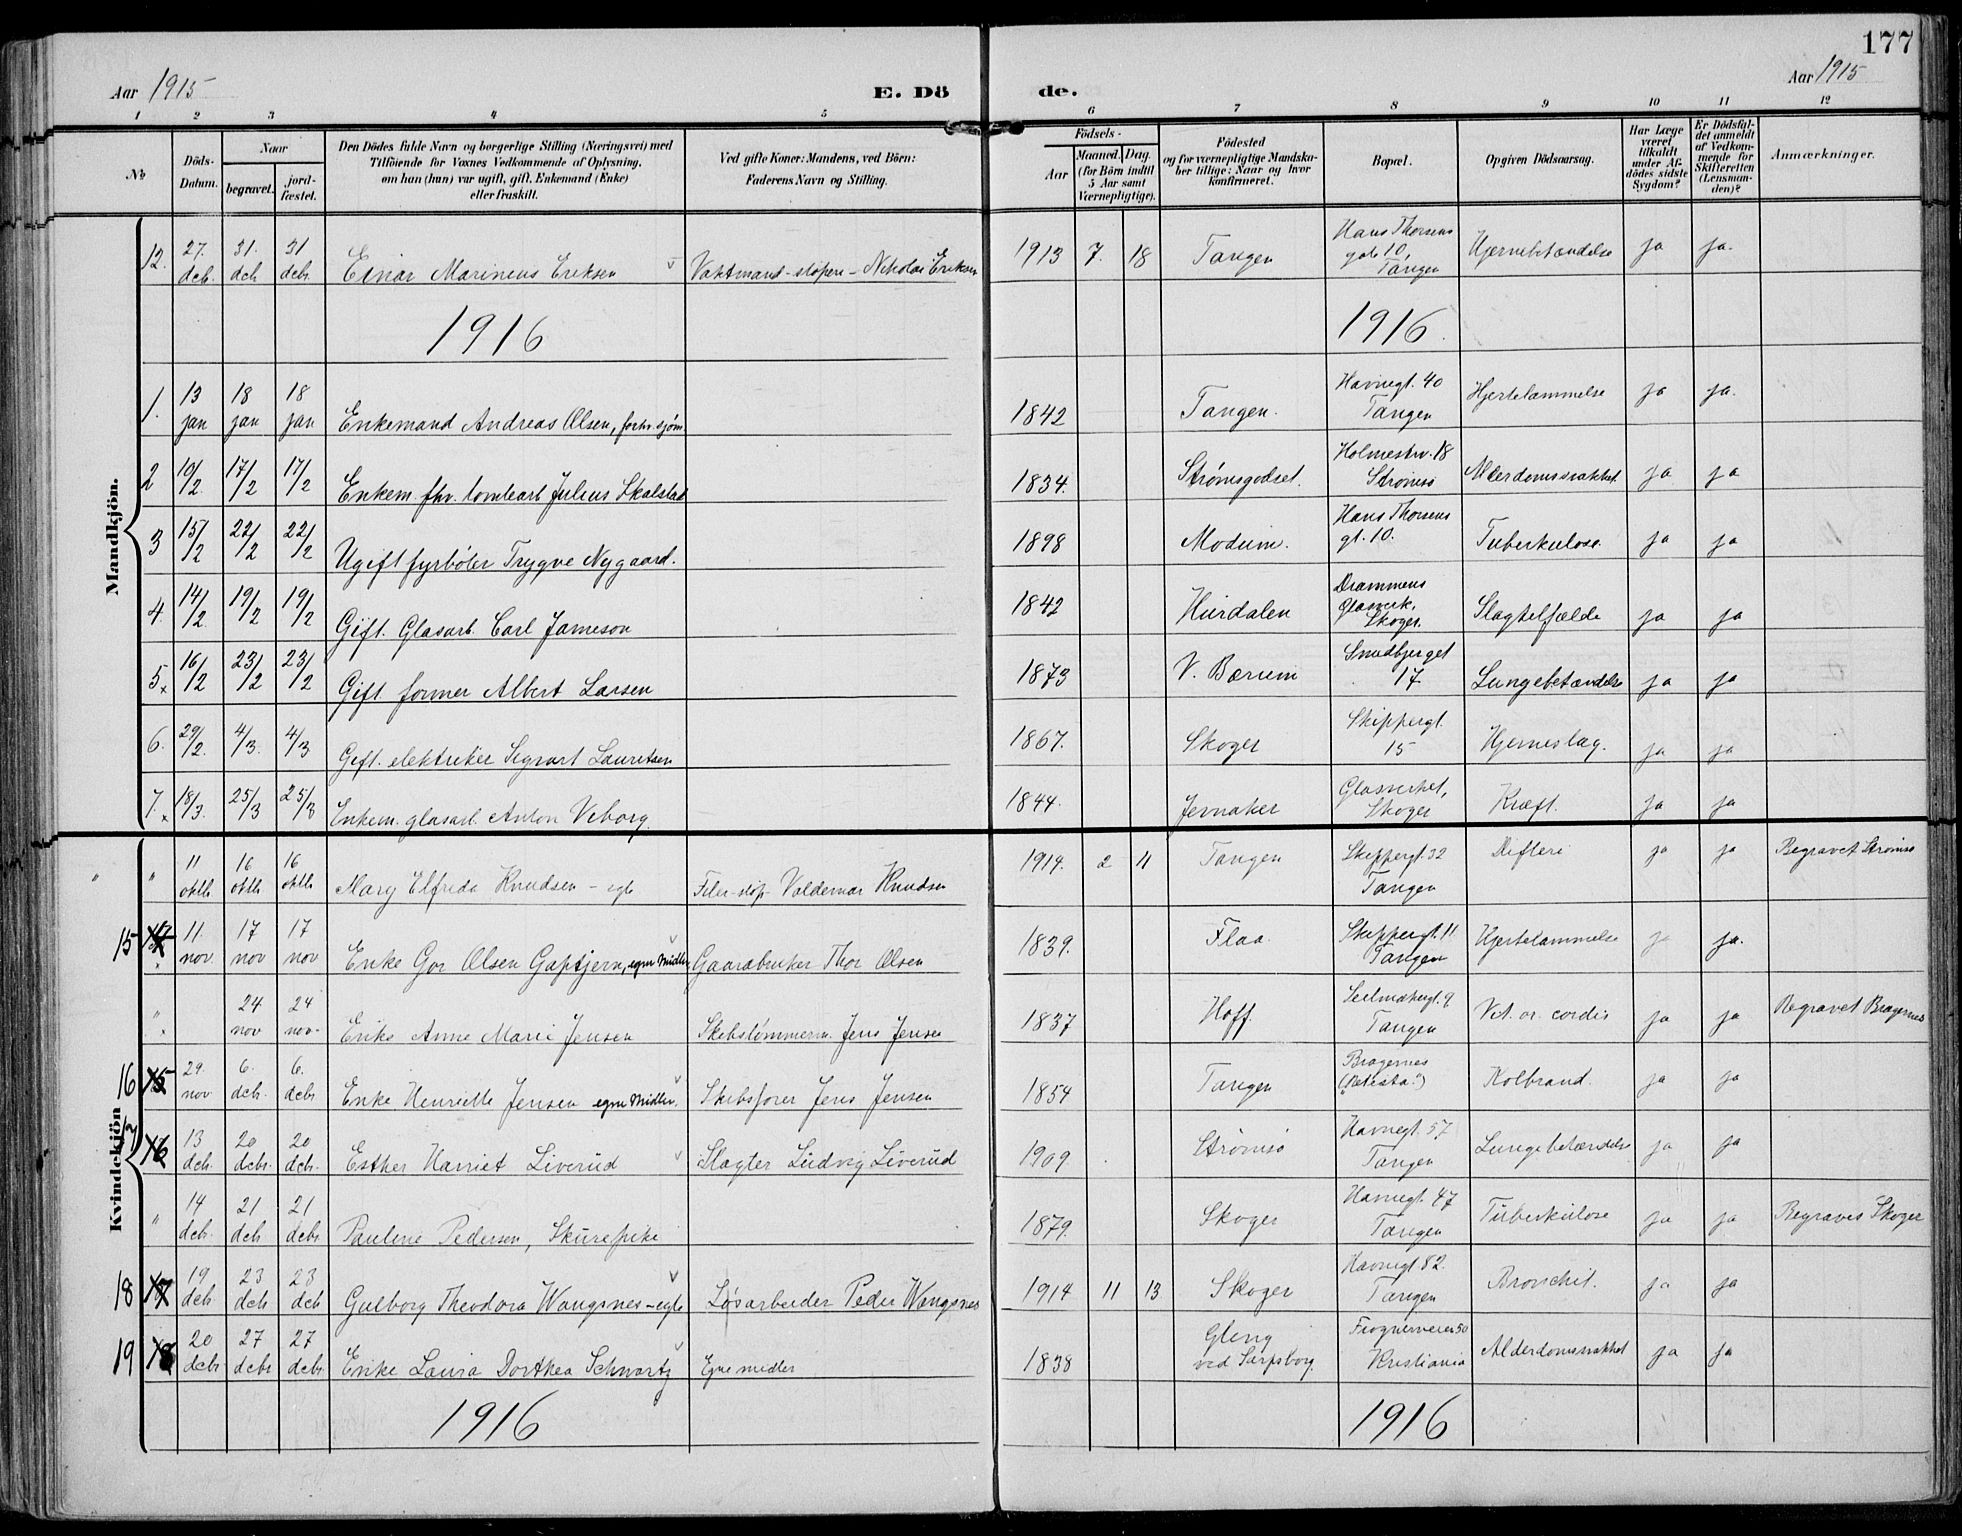 177
Aar 1915
E. Döde.
Aar 1915
1 2 3 4 5 6 7 8 9 10 11 12
No
Döds-Datum.
Naar
begravet.
jord-fæstet.
Den Dödes fulde Navn og borgerlige Stilling (Næringsvei) med
Tilföiende for Voxnes Vedkommende af Oplysning,
om han (hun) var ugift, gift, Enkemand (Enke)
eller fraskilt.
Ved gifte Koner: Mandens, ved Börn:
Faderens Navn og Stilling.
Födsels-
Aar
Maaned. Dag.
(for Börn indtil
5 Aar samt
Værnepligtige).
Födested
og for værnepligtige Mandska-
ber tillige: Naar og hvor
konfirmeret.
Bopæl.
Opgiven Dödsaarsag.
Har Læge
været
tilkaldt
under Af-
dödes sidste
Sygdom?
Er Dödsfal-
det anmeldt
af Vedkom-
mende for
Skifteretten
(Lensman-
den)?
Anmærkninger.
Mandkjön.
12. 27. decb. 31. dcb 31 debr. Einar Marineus Eriksen Vaktmand - støperi - Nikolai Eriksen 1913 7. 18 Tangen Hans Thorsens gate 10, Tangen Hjernebetændelse ja ja.
1916 1916.
1. 13 jan 18 jan 18 jan Enkemand Andreas Olsen, forhv. sjøm. 1842 Tangen. Havnegt. 40 Tangen Hjertelammelse ja ja.
2 10/2. 17/2 17/2 Enkem. fhv. tomtearb Julius Skalstad 1834. Strømsgodset. Holmestrv. 18 Strømsø Alderdomssvakhet ja ja
3 15/2 22/2 22/2 Ugift fyrbøter Trygve Nygaard. 1898 Modum. Hans Thorsens gt. 10. Tuberkulose ja ja
4. 14/2 19/2 19/2 Gift. Glasarb. Carl Jameson 1842 Hurdalen Drammens Glasverk, Skoger. Slagtelfælde ja ja
5. 16/2 23/2 23/2 Gift former Albert Larsen 1873 V. Bærum Smedbjerget 17. Lungebetændelse ja ja
6. 29/2. 4/3. 4/3 Gift. elektriker Sigvart Lauritsen 1867. Skoger Skippergt. 15 Hjerneslag. ja ja
7. 18/3. 25/3 25/3 Enkem. glasarb. Anton Viborg. 1844. Jevnaker Glasverket, Skoger Kræft. ja ja
Kvindekjön
" 11 oktb. 16 oktb 16 oktb Mary Elfrida Knudsen - egte Filer-støp- Valdemar Knudsen 1914. 2 11 Tangen Skippergt. 32 Tangen Difteri ja ja Begravet Strømsø
15 11. nov. 17 nov 17 nov Enke Gor Olsen Gaptjern, egne Midler. Gaardbruker Thor Olsen 1839. Flaa. Skippergt. 11 Tangen Hjertelammelse ja ja.
" 24 nov 24 nov. Enke Anne Marie Jensen Skibstømmerm. Jens Jensen 1837 Hoff. Tangen Vit. or. cordis ja ja Begravet Bragernes
16 15 29. nov 6. dcb. 6. debr Enke Henriette Jensen egne Midler. Skibsfører Jens Jensen 1854 Tangen Bragernes Kolbrand. ja ja
17 16 13 dcb. 20 debr. 20 debr. Esther Harriet Liverud Slagter Ludvig Liverud 1909. Strømsø Havnegt. 57 Tangen Lungebetændelse ja ja
" 14 debr. 21 dcb 21 debr Pauline Pedersen, Skurepike 1879. Skoger Havnegt. 47 Tangen Tuberkulose ja ja Begraves Skoger
18 17 19 dcb 23 dcb 23 dcb Gulborg Theodora Wangsnes - egte Løsarbeider Peder Wangsnes 1914 11 13. Skoger Havnegt 82. Tangen Bronchit. ja ja
19 18 20 debr 27 debr 27 debr Enke Laura Dorthea Schwartz Egne midler 1838 Gleng ved Sarpsborg. Frognerveien 50 Kristiania Alderdomssvakhet ja ja
1916 1916